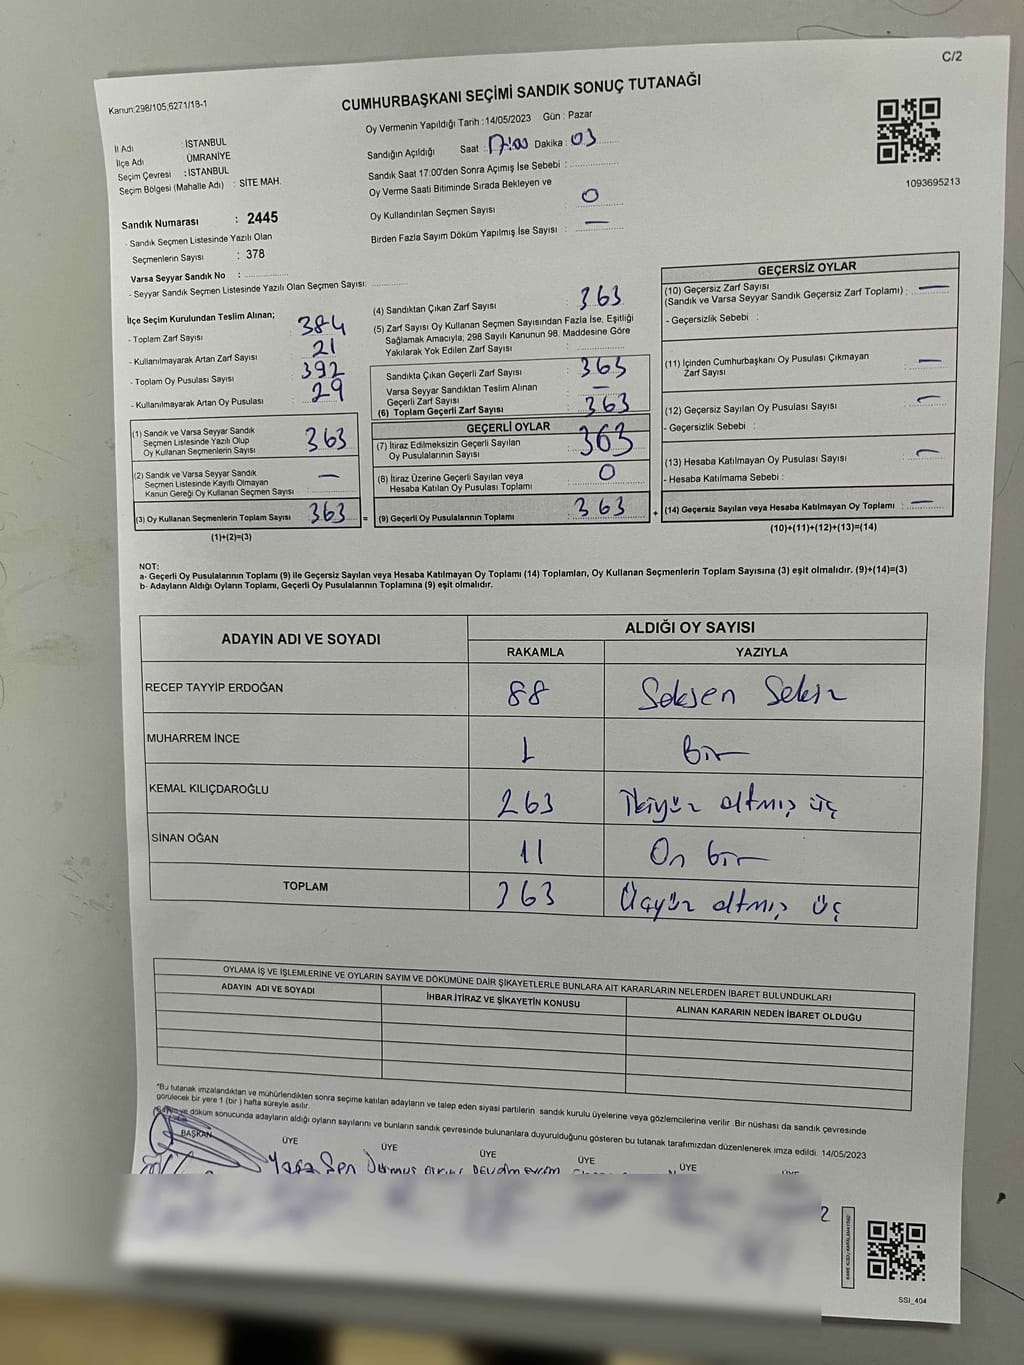 C/2
Kanun:298/105,6271/18-1
CUMHURBAŞKANI SEÇİMİ SANDIK SONUÇ TUTANAĞI
Oy Vermenin Yapıldığı Tarih : 14/05/2023 Gün : Pazar
İl Adı İSTANBUL
İlçe Adı ÜMRANİYE
Seçim Çevresi : İSTANBUL
Seçim Bölgesi (Mahalle Adı) : SİTE MAH.
Sandığın Açıldığı Saat : 17:00 Dakika : 03
Sandık Saat 17:00'den Sonra Açımış İse Sebebi :
Oy Verme Saati Bitiminde Sırada Bekleyen ve
Oy Kullandırılan Seçmen Sayısı : 0
Birden Fazla Sayım Döküm Yapılmış İse Sayısı : —
1093695213
Sandık Numarası : 2445
- Sandık Seçmen Listesinde Yazılı Olan
Seçmenlerin Sayısı : 378
Varsa Seyyar Sandık No :
- Seyyar Sandık Seçmen Listesinde Yazılı Olan Seçmen Sayısı:
İlçe Seçim Kurulundan Teslim Alınan;
- Toplam Zarf Sayısı : 384
- Kullanılmayarak Artan Zarf Sayısı : 21
- Toplam Oy Pusulası Sayısı : 392
- Kullanılmayarak Artan Oy Pusulası : 29
(1) Sandık ve Varsa Seyyar Sandık
Seçmen Listesinde Yazılı Olup
Oy Kullanan Seçmenlerin Sayısı : 363
(2) Sandık ve Varsa Seyyar Sandık
Seçmen Listesinde Kayıtlı Olmayan
Kanun Gereği Oy Kullanan Seçmen Sayısı : —
(3) Oy Kullanan Seçmenlerin Toplam Sayısı : 363 =
(1)+(2)=(3)
(4) Sandıktan Çıkan Zarf Sayısı : 363
(5) Zarf Sayısı Oy Kullanan Seçmen Sayısından Fazla İse, Eşitliği
Sağlamak Amacıyla; 298 Sayılı Kanunun 98. Maddesine Göre
Yakılarak Yok Edilen Zarf Sayısı :
Sandıkta Çıkan Geçerli Zarf Sayısı : 363
Varsa Seyyar Sandıktan Teslim Alınan
Geçerli Zarf Sayısı : —
(6) Toplam Geçerli Zarf Sayısı : 363
GEÇERLİ OYLAR
(7) İtiraz Edilmeksizin Geçerli Sayılan
Oy Pusulalarının Sayısı : 363
(8) İtiraz Üzerine Geçerli Sayılan veya
Hesaba Katılan Oy Pusulası Toplamı : 0
(9) Geçerli Oy Pusulalarının Toplamı : 363 +
GEÇERSİZ OYLAR
(10) Geçersiz Zarf Sayısı
(Sandık ve Varsa Seyyar Sandık Geçersiz Zarf Toplamı) : —
- Geçersizlik Sebebi :
(11) İçinden Cumhurbaşkanı Oy Pusulası Çıkmayan
Zarf Sayısı : —
(12) Geçersiz Sayılan Oy Pusulası Sayısı : —
- Geçersizlik Sebebi :
(13) Hesaba Katılmayan Oy Pusulası Sayısı : —
- Hesaba Katılmama Sebebi :
(14) Geçersiz Sayılan veya Hesaba Katılmayan Oy Toplamı : —
(10)+(11)+(12)+(13)=(14)
NOT:
a- Geçerli Oy Pusulalarının Toplamı (9) ile Geçersiz Sayılan veya Hesaba Katılmayan Oy Toplamı (14) Toplamları, Oy Kullanan Seçmenlerin Toplam Sayısına (3) eşit olmalıdır. (9)+(14)=(3)
b- Adayların Aldığı Oyların Toplamı, Geçerli Oy Pusulalarının Toplamına (9) eşit olmalıdır.
ADAYIN ADI VE SOYADI ALDIĞI OY SAYISI
RAKAMLA YAZIYLA
RECEP TAYYİP ERDOĞAN 88 Seksen Sekiz
MUHARREM İNCE 1 Bir
KEMAL KILIÇDAROĞLU 263 İkiyüz altmış üç
SİNAN OĞAN 11 On bir
TOPLAM 363 Üçyüz altmış üç
OYLAMA İŞ VE İŞLEMLERİNE VE OYLARIN SAYIM VE DÖKÜMÜNE DAİR ŞİKAYETLERLE BUNLARA AİT KARARLARIN NELERDEN İBARET BULUNDUKLARI
ADAYIN ADI VE SOYADI İHBAR İTİRAZ VE ŞİKAYETİN KONUSU ALINAN KARARIN NEDEN İBARET OLDUĞU
*Bu tutanak imzalandıktan ve mühürlendikten sonra seçime katılan adayların ve talep eden siyasi partilerin sandık kurulu üyelerine veya gözlemcilerine verilir. Bir nüshası da sandık çevresinde
görülecek bir yere 1 (bir ) hafta süreyle asılır.
ve döküm sonucunda adayların aldığı oyların sayılarını ve bunların sandık çevresinde bulunanlara duyurulduğunu gösteren bu tutanak tarafımızdan düzenlenerek imza edildi. 14/05/2023
BAŞKAN ÜYE ÜYE ÜYE ÜYE ÜYE
Şen Durmuş
2
SSİ_404